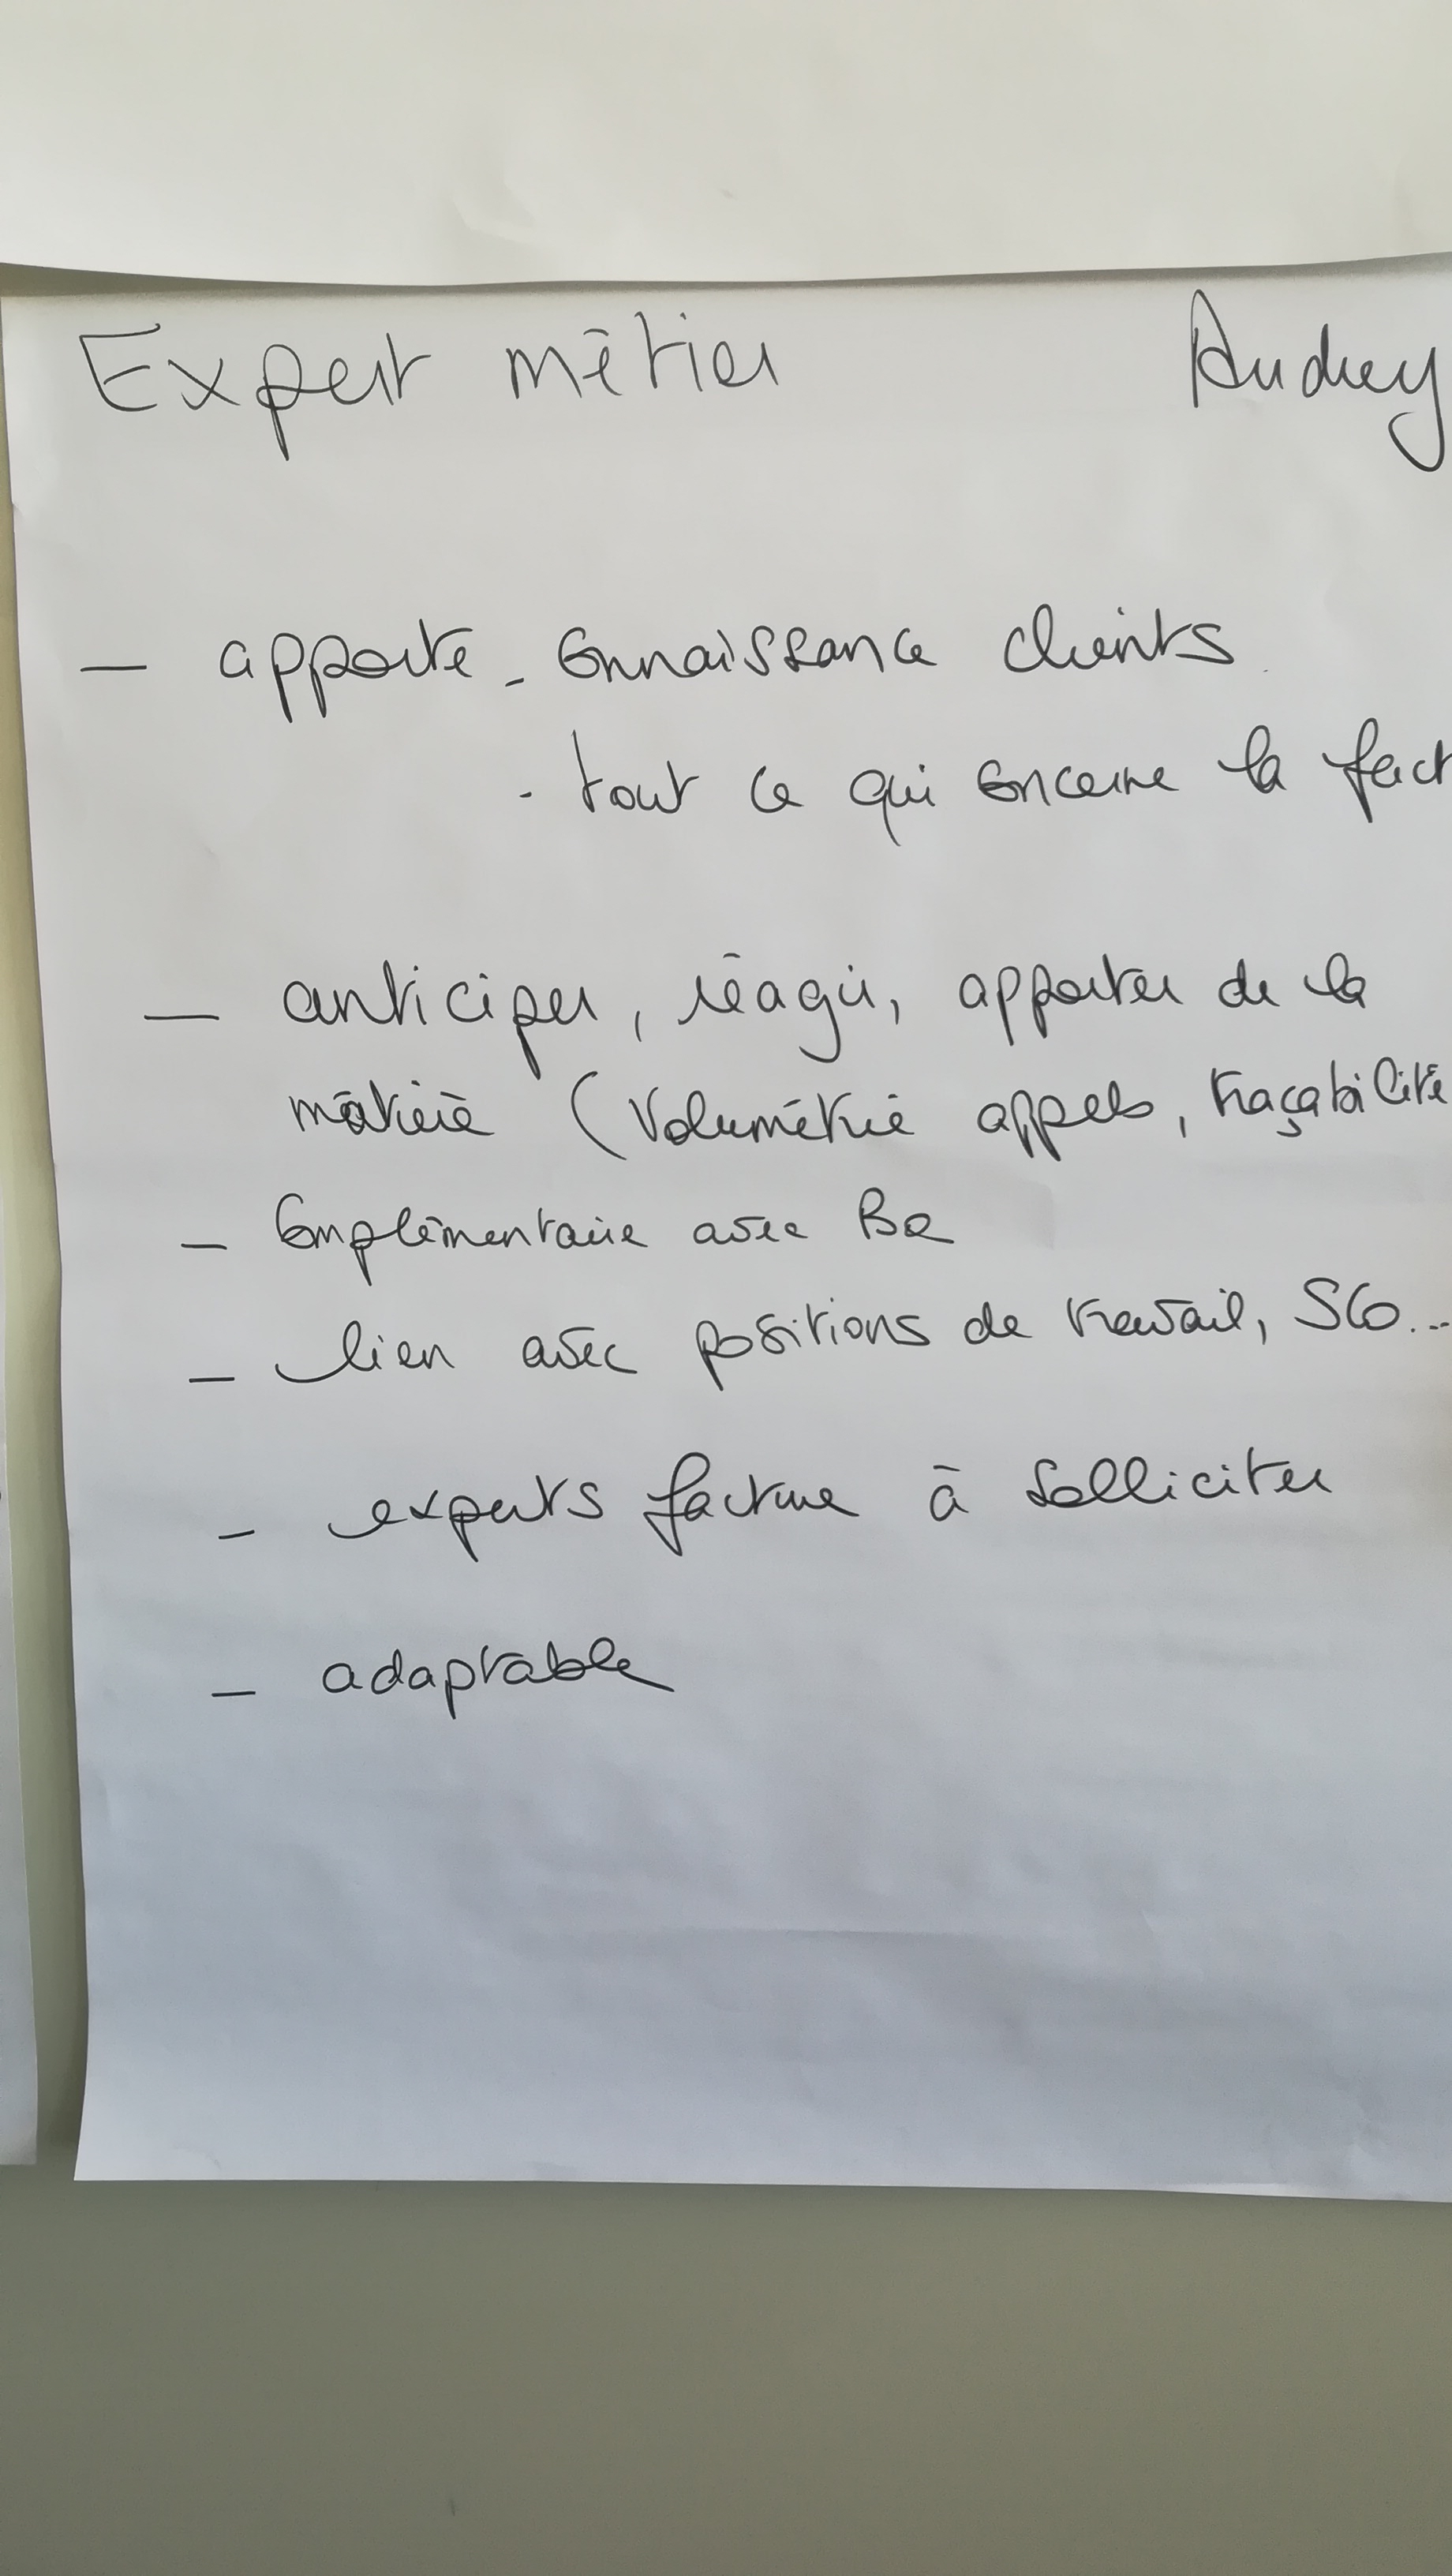 Expert métier Audrey
— apporte - connaissance clients
- tout ce qui concerne la fact
— anticiper, réagir, apporter de la
matière (volumétrie appels, traçabilité
- complémentaire avec
- lien avec positions de travail, SCO...
- experts facture à solliciter
- adaptable